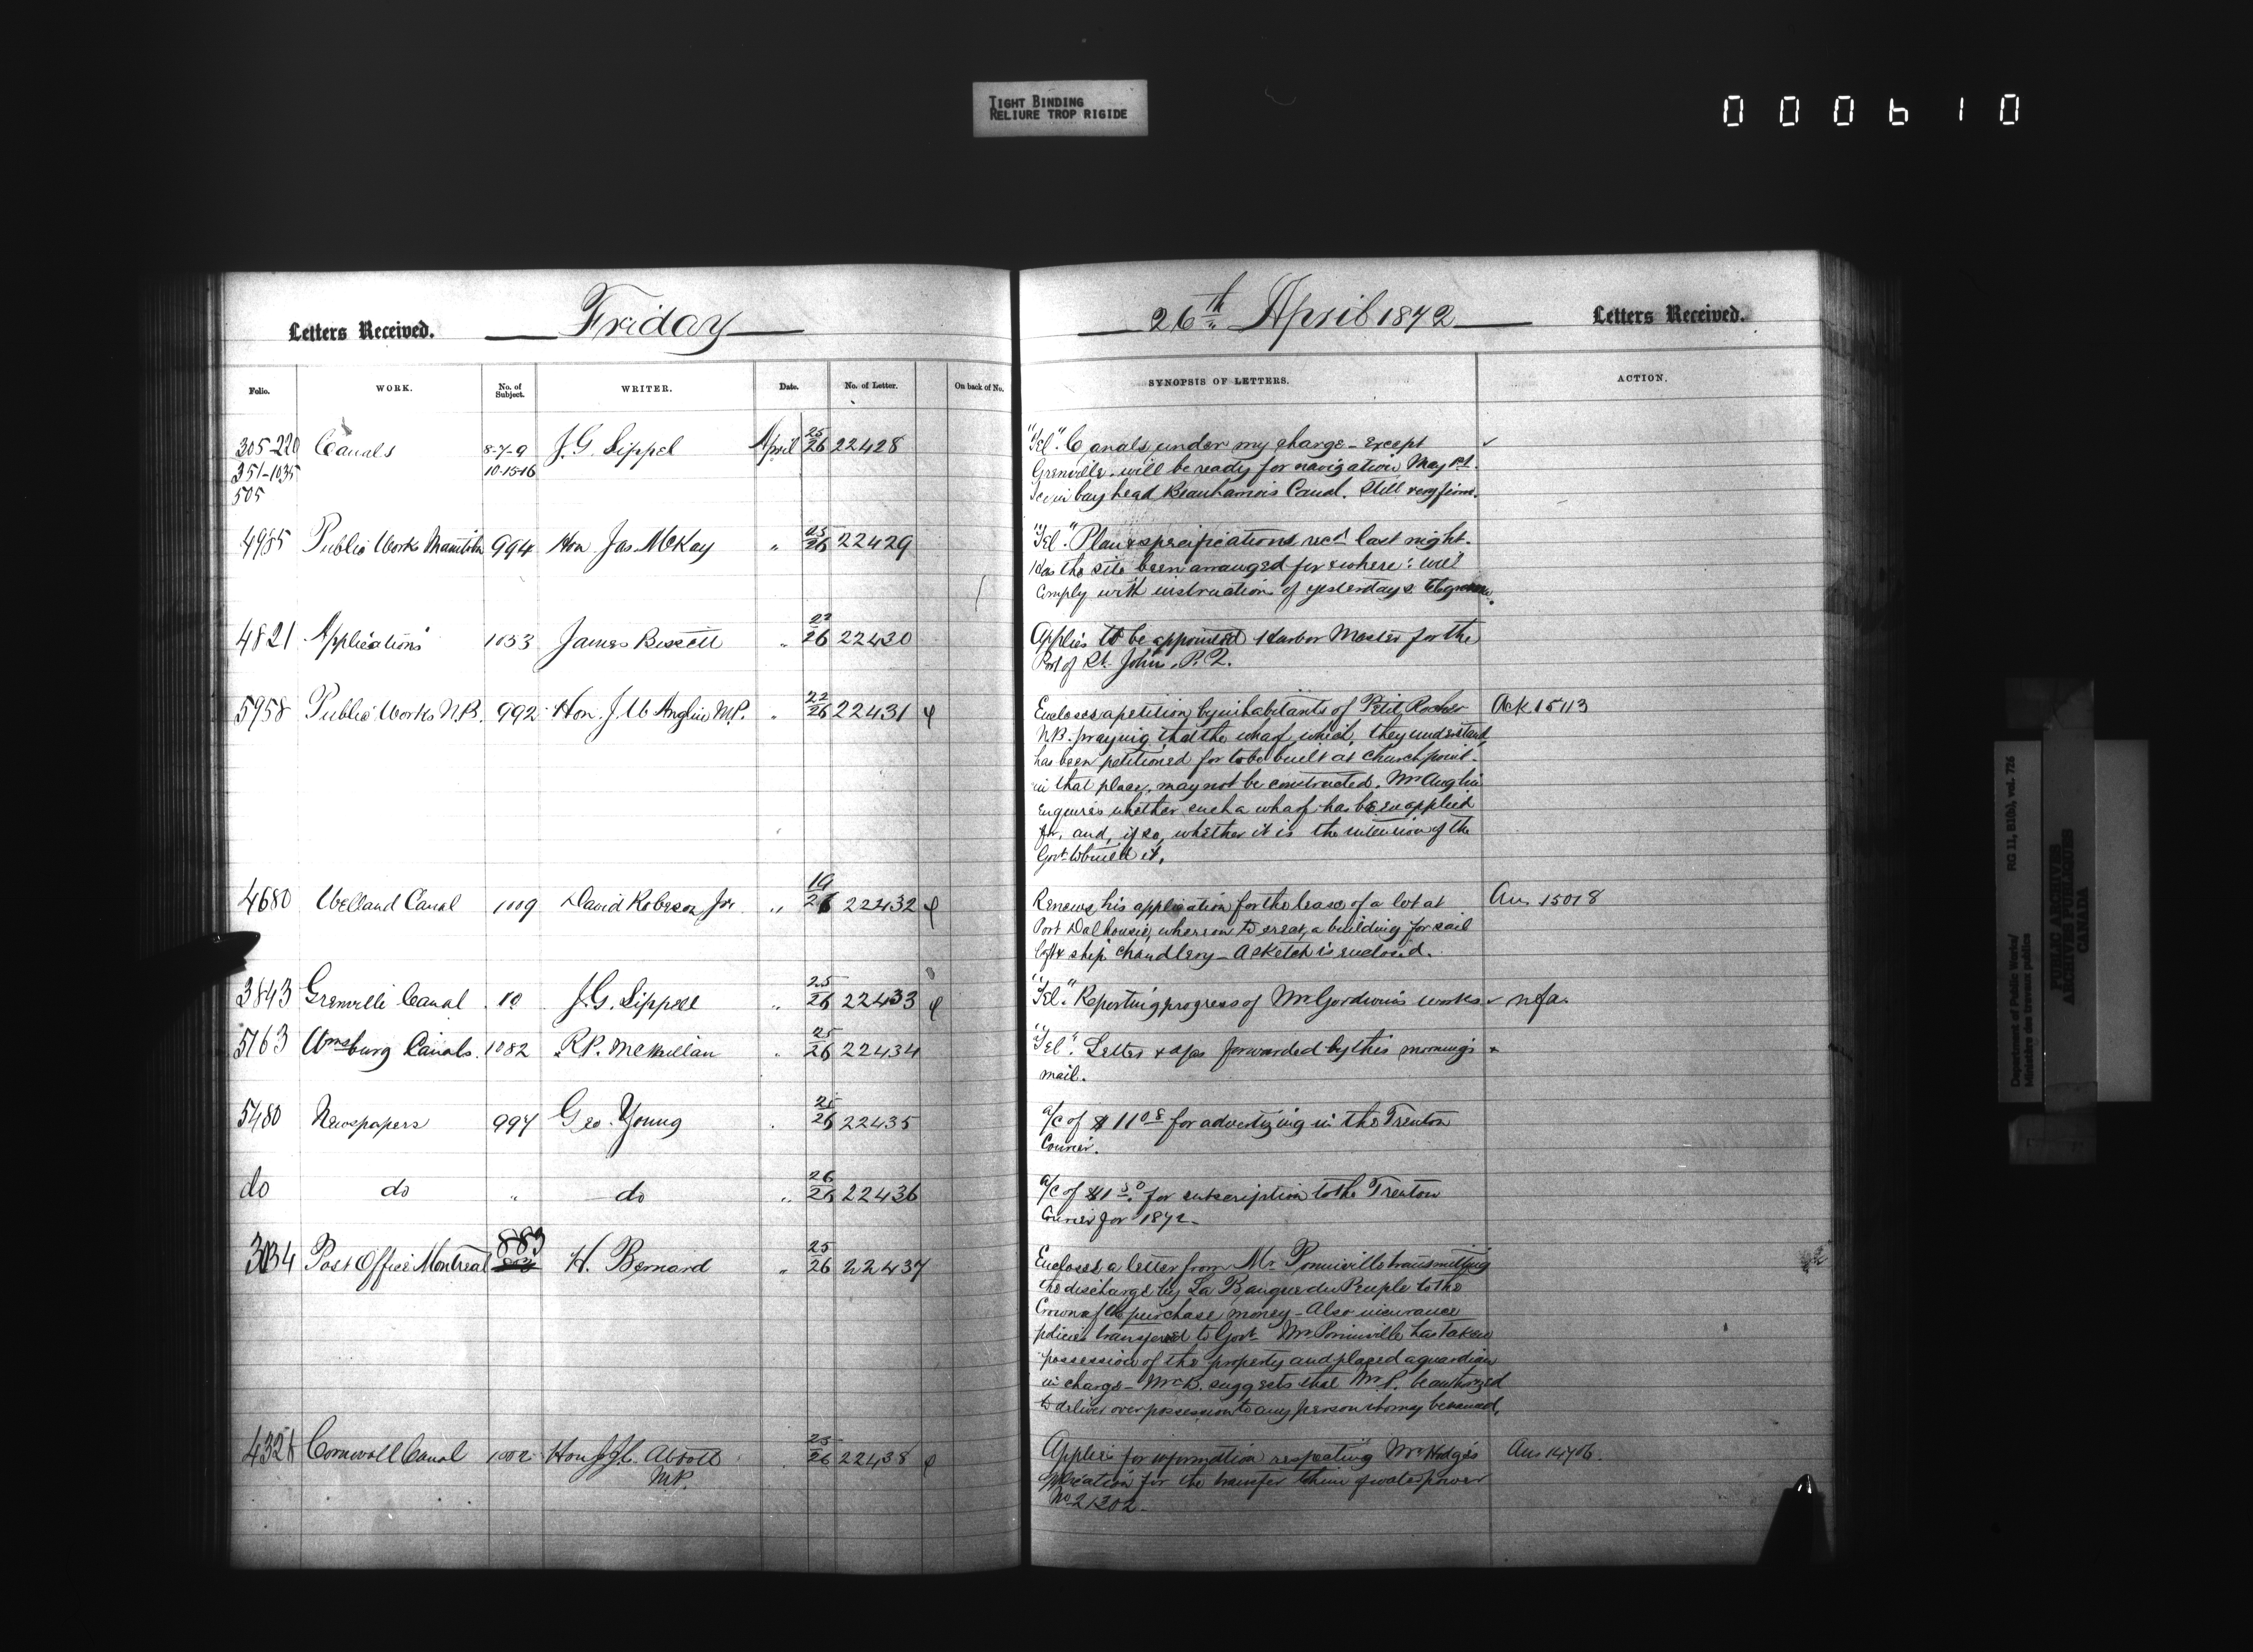 TIGHT BINDING
RELIURE TROP RIGIDE
000610
Letters Received.
Friday
26th April 1872
Letters Received.
Folio.
WORK.
No. of Subject.
WRITER.
Date.
No. of Letter.
On back of No.
SYNOPSIS OF LETTERS.
ACTION.
305-220 Canals 8-7-9 J.G. Sippel April 25/26 22428
351-1035 10-15-16
505
"Tel." Canals under my charge - except
Grenville, will be ready for navigation May 1st.
bay head Beauharnois Canal. Still very firm.
4985 Public Works Manitoba 994 Hon Jas. McKay " 25/26 22429
"Tel." Plan & specifications recd last night.
Has the site been arranged for & where: will
comply with instruction of yesterdays telegram.
4821 Applications 1053 James Bissett " 22/26 22430
Applies to be appointed Harbor Master for the
Port of St. John, P.Q.
5958 Public Works N.B. 992 Hon. J.W Anglin M.P. " 22/26 22431 φ
Encloses a petition by inhabitants of Petit Rocher
N.B. praying that the wharf which they understand
has been petitioned for to be built at Church point
in that place, may not be constructed. Mr Anglin
enquires whether such a wharf has been applied
for, and, if so, whether it is the intention of the
Govt to build it.
Ack 15113
4680 Welland Canal 1009 David Roberson Jnr " 19/26 22432 φ
Renews his application for the lease of a lot at
Port Dalhousie, whereon to erect a building for sail
loft & ship chandlery - A sketch is enclosed.
Ans 15018
3843 Grenville Canal 10 J.G. Sippell " 25/26 22433 φ
"Tel." Reporting progress of Mr Goodwin's works ✓ nfa.
5163 Wmsburg Canals 1082 R.P. McMillan " 25/26 22434
"Tel". Letter & a/cs forwarded by this morning's
mail.
5480 Newspapers 994 Geo. Young 22435
a/c of $11 08 for advertizing in the Trenton
Courier.
do do " do " 26/26 22436
a/c of $1 50 for subscription to the Trenton
Courier for 1872.
3034 Post Office Montreal 883 H. Bernard " 25/26 22437
Encloses a letter from Mr Pominville transmitting
the discharge by La Banque du Peuple to the
Crown of the purchase money - Also insurance
policies transferred to Govt Mr Pominville has taken
possession of the property and placed a guardian
in charge - Mr B. suggests that Mr P. be authorized
to deliver over possession to any person who may be named.
Cornwall Canal 1002 Hon J.J.C. Abbott 25/26 22438 φ
M.P.
Applies for information respecting Mr Hodge's
application for the transfer to him of water power
No 21202.
Ans 14706.
Department of Public Works/
Ministère des travaux publics
RG 11, B1(b), vol. 726
PUBLIC ARCHIVES
ARCHIVES PUBLIQUES
CANADA